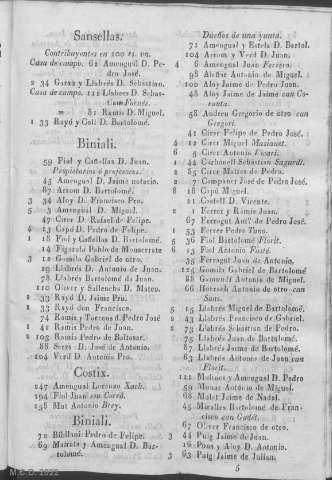 Sansellas.
Contribuyentes en 200 rs. vn.
Casa de campo. 62 Amengual D. Pedro José.
2 34 Garau y Llabrés D. Sebastian.
Casa de campo. 121 Llabres D. Sebastian
82 Ramis D. Miguel.
1 33 Rayó y Coll D. Bartolomé.
Biniali.
59 Fiol y Cañellas D. Juan.
Propietarios ó profesores.
45 Amengual D. Jaime notario.
87 Arrom D. Bartolomé.
3 34 Aloy D. Francisco Pro.
5 3 Amengual D. Miguel.
47 Cirer D. Rafael de Felipe.
4 23 Capó D. Pedro de Felipe.
1 18 Fiol y Cañellas D. Bartolomé
14 Figuerol Pablo de Monserrate
3 12 Gomila Gabriel de otro.
19 Llabrés D. Antonio de Juan.
78 Llabres Bartolomé de Juan.
110 Oliver y Sallenchs D. Mateo.
1 33 Rayó D. Jaime Pro.
1 33 Rayó don Francisco.
74 Ramis y Torrens d. Pedro José
1 41 Ramis Pedro de Juan.
2 103 Ramis Pedro de Baltasar.
88 Serra D. José de Antonio.
104 Verd D. Antonio Pro.
Costix.
247 Amengual Lorenzo
194 Fiol Juan son Corró.
258 Mut Antonio Brey.
Biniali.
72 Bibiloni Pedro de Felipe.
69 Mairata y Amengual D. Bartolomé.
Dueños de una yunta.
71 Amengual y Estela D. Bartol.
104 Arrom y Verd D. Juan.
4 6 Amengual Juan Ferrero.
98 Antonio de Miguel.
100 Aloy Jaime de Pedro Juan.
48 Aloy Jaime de Jaime can
56 Andreu Gregorio de otro can Gregori.
41 Cirer Felipe de Pedro José.
4 12 Cirer Miguel
6 5 Cirer Antonio
1 44 Carbonell Sebastian
2 85 Cirer Mateo de Pedro.
2 7 Company José de Pedro José
8 18 Capó Miguel.
11 Costell D. Vicente.
2 1 Ferrer y Ramis Juan.
67 Ferragut Antº de Pedro José
1 53 Ferrer Pedro Juan.
5 36 Fiol Bartolomé
6 13 Fiol Antonio
35 Ferragut Juan de Antonio.
125 Gomila Gabriel de Bartolomé
88 Antonio de Miguel.
66 Horrach Antonio de otro can Sans.
5 15 Llabrés Miguel de Bartolomé.
1 43 Llabrés Francisco de Gabriel.
2 73 Llabrés Sebastian de Pedro.
75 Llabrés Juan de Bartolomé.
87 Llabrés Jaime de Bartolomé.
63 Llabrés Antonio de Juan can
121 Molines y Amengual D. Pedro
59 Munar Antonio de Miguel.
68 Malet Jaime de Nadal.
45 Miralles Bartolomé de Francisco can
67 Oliver Francisco de otro.
3 44 Puig Jaime de Juan.
16 Pons y Aloy D. Antonio.
3 63 Puig Jaime de Julian.
5
M.C.D. 2022